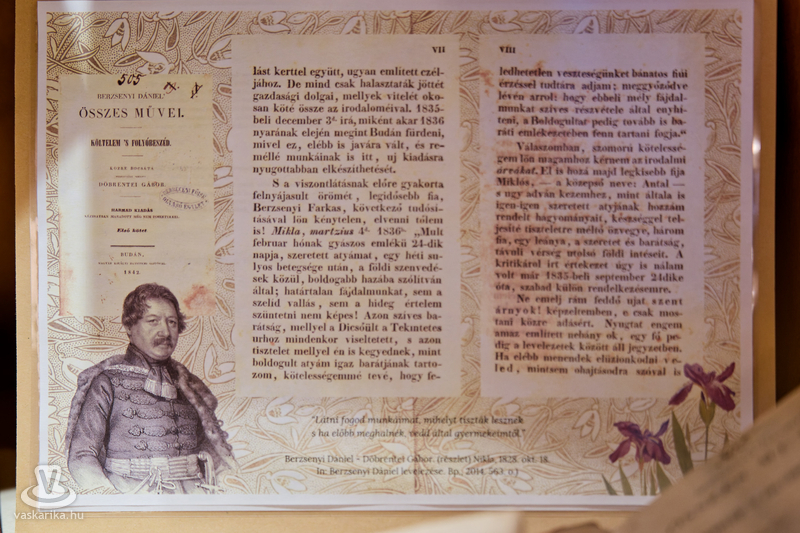 505
BERZSENYI DÁNIEL'
ÖSSZES MŰVEI.
KÖLTELEM 'S FOLYÓBESZÉD.
KÖZRE BOCSÁTÁ
DÖBRENTEI GÁBOR.
HARMAS KIADÁS
Első kötet
BUDÁN,
1842.
VII
lást kerttel együtt, ugyan említett czél-
jához. De mind csak halaszták jöttét
gazdasági dolgai, mellyek vitelét oko-
san köté össze az irodaloméival. 1835-
beli december 3ᵏ irá, miként akar 1836
nyarának elején megint Budán fürdeni,
mivel ez, elébb is javára vált, és re-
méllé munkáinak is itt, uj kiadásra
nyugottabban elkészíthetését.
S a viszontlátásnak előre gyakorta
felnyájasult örömét, legidősebb fia,
Berzsenyi Farkas, következő tudósi-
tásával lőn kénytelen, elvenni tőlem
is! Mikla, martzius 4ᵏ 1836ᵏ „Mult
februar hónak gyászos emlékü 24-dik
napja, szeretett atyámat, egy heti su-
lyos betegsége után, a földi szenvedé-
sek közül, boldogabb hazába szólitván
által; határtalan fájdalmunkat, sem a
szelid vallás, sem a hideg értelem
szüntetni nem képes! Azon szives ba-
rátság, mellyel a Dicsőült a Tekintetes
urhoz mindenkor viseltetett, s azon
tisztelet mellyel én is kegyednek, mint
boldogult atyám igaz barátjának tarto-
zom, kötelességemmé tevé, hogy fe-
VIII
ledhetetlen veszteségünket bánatos fiúi
érzéssel tudtára adjam; meggyőződve
lévén arról: hogy ebbeli mély fájdal-
munkat szives részvétele által enyhí-
teni, a Boldogultat pedig tovább is ba-
ráti emlékezetében fenn tartani fogja."
Válaszomban, szomorú kötelessé-
gem lőn magamhoz kérnem az irodalmi
árvákat. El is hozá majd legkisebb fija
Miklós, — a középső neve: Antal —
s ugy adván kezemhez, mint általa is
igen-igen szeretett atyjának hozzám
rendelt hagyományait, készséggel tel-
jesité tiszteletre méltó özvegye, három
fia, egy leánya, a szeretet és barátság,
távuli vérseg utolsó földi intéseit. A
kritikáról irt értekezet úgy is nálam
volt már 1835-beli september 24dike
óta, szabad külön rendelkezésemre.
Ne emelj rám feddő ujat szent
árnyok! képzeletemben, e csak mos-
tani közre adásért. Nyugtat engem
amaz említett néhány ok, egy fő pe-
dig a levelezetek között áll jegyzetben.
Ha elébb menendek elüzionkodni ve-
led, mintsem ohajtásodra szóval is
"Látni fogod munkáimat, mihelyt tiszták lesznek
s ha előbb meghalnék, vedd által gyermekeimtől."
Berzsenyi Dániel – Döbrentei Gábor. (részlet) Nikla, 1828. okt. 18.
In: Berzsenyi Dániel levelezése. Bp., 2014. 563. o.)
vaskarika.hu